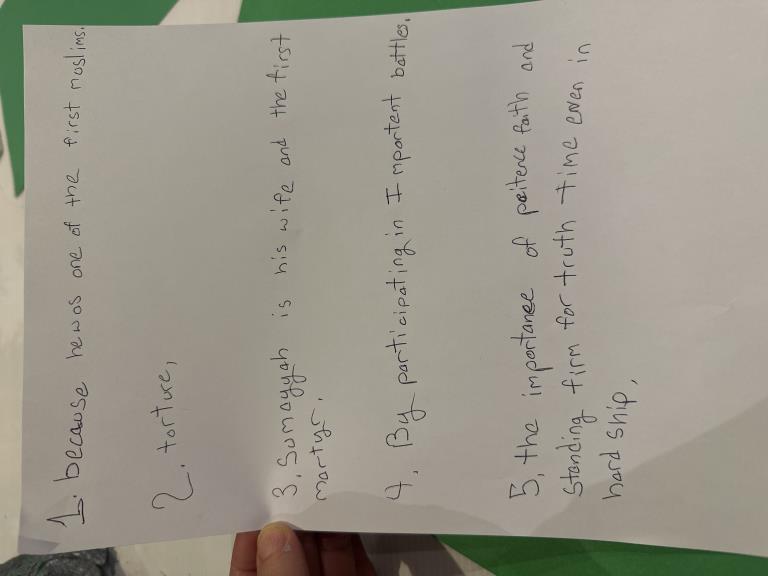 1. because hewas one of the first moslims.
2. torture,
3. Sumayyah is his wife and the first
martyr.
4. By participating in Important battles.
5, the importance of peitence faith and
Standing firm for truth time even in
hard ship,